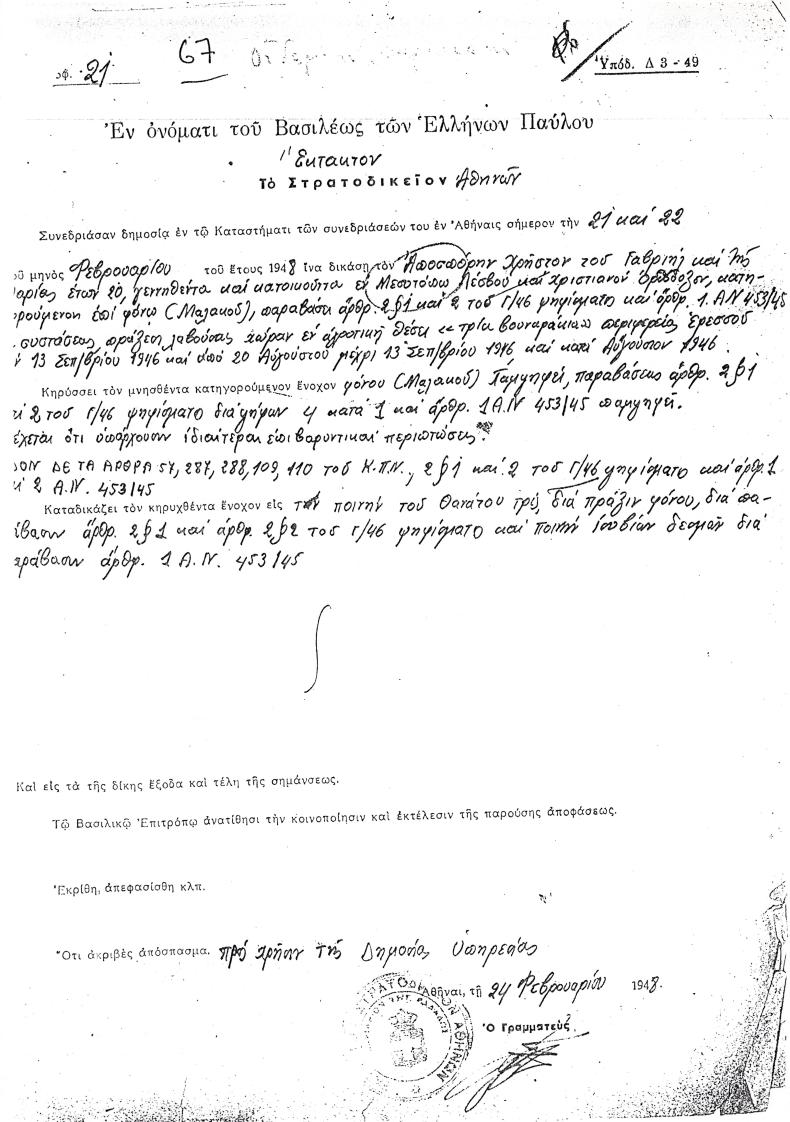 οφ. 21 67 Ὑπόδ. Δ 3 - 49
Ἐν ὀνόματι τοῦ Βασιλέως τῶν Ἑλλήνων Παύλου
Ἔκτακτον
Τὸ Στρατοδικεῖον Ἀθηνῶν
Συνεδριάσαν δημοσίᾳ ἐν τῷ Καταστήματι τῶν συνεδριάσεών του ἐν Ἀθήναις σήμερον τὴν 21 καὶ 22
οῦ μηνὸς Φεβρουαρίου τοῦ ἔτους 1948 ἵνα δικάσῃ τὸν Αποσπόρην Χρῆστον του Γαβριήλ και της
αρίας ετών 20, γεννηθέντα και κατοικούντα εν Μεσοτόπω Λέσβου και χριστιανόν ορθόδοξον, κατη-
ρούμενον επί φόνω (Μαλακού), παραβάσει άρθρ. 2 § 1 και 2 του Γ/46 ψηφίσματο και άρθρ. 1 Α.Ν 453/45
συστάσεως, πράξεις λαβούσας χώραν εν αγροτική θέσει «Τρία βουναράκια» περιφερείας Ερεσσού
ν 13 Σεπ/βρίου 1946 και από 20 Αυγούστου μέχρι 13 Σεπ/βρίου 1946 και κατά Αύγουστον 1946.
Κηρύσσει τὸν μνησθέντα κατηγορούμενον ἔνοχον φόνου (Μαλακού) Παμψηφεί, παραβάσεως άρθρ. 2 § 1
κ 2 του Γ/46 ψηφίσματο διά ψήφων 4 κατά 1 και άρθρ. 1 Α.Ν 453/45 παμψηφεί.
έχεται ότι υπάρχουσιν ιδιαίτεραι επιβαρυντικαί περιπτώσεις.
ΟΝ ΔΕ ΤΑ ΑΡΘΡΑ 57, 287, 288, 109, 110 του Κ.Π.Ν., 2 § 1 και 2 του Γ/46 ψηφίσματο και άρθρ. 1
κ 2 Α.Ν. 453/45
Καταδικάζει τὸν κηρυχθέντα ἔνοχον εἰς την ποινήν του Θανάτου τρίς, διά πράξιν φόνου, διά πα-
ίβασιν άρθρ. 2 § 1 και άρθρ. 2 § 2 του Γ/46 ψηφίσματο και ποινήν Ισοβίων δεσμών διά
ράβασιν άρθρ. 1 Α.Ν. 453/45
Καὶ εἰς τὰ τῆς δίκης ἔξοδα καὶ τέλη τῆς σημάνσεως.
Τῷ Βασιλικῷ Ἐπιτρόπῳ ἀνατίθησι τὴν κοινοποίησιν καὶ ἐκτέλεσιν τῆς παρούσης ἀποφάσεως.
Ἐκρίθη, ἀπεφασίσθη κλπ.
Ὅτι ἀκριβὲς ἀπόσπασμα. πρός χρήσιν της Δημοσίας Υπηρεσίας
Ἀθῆναι, τῇ 24 Φεβρουαρίου 1948.
Ὁ Γραμματεὺς
ΣΤΡΑΤΟΔΙΚΕΙΟΝ ΑΘΗΝΩΝ